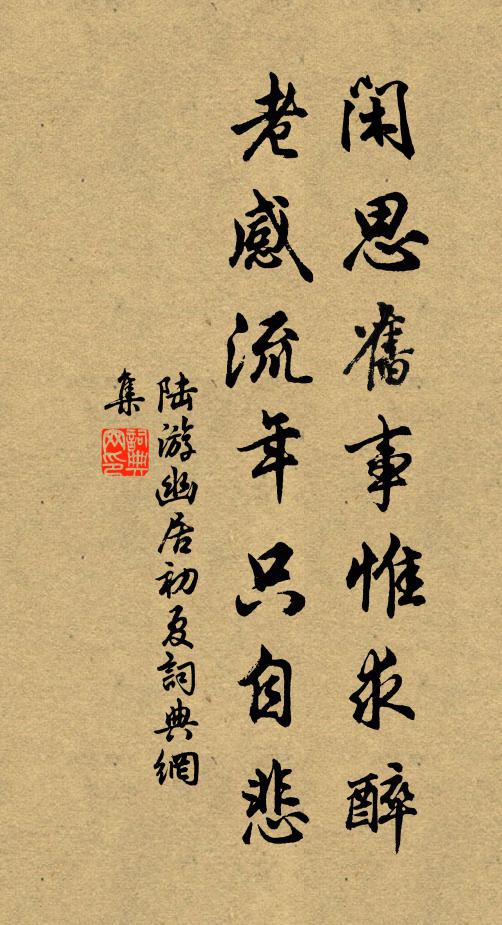 閑思舊事惟求醉
老感流年只自悲
陆游幽居初夏詞典網
集
詞典網印